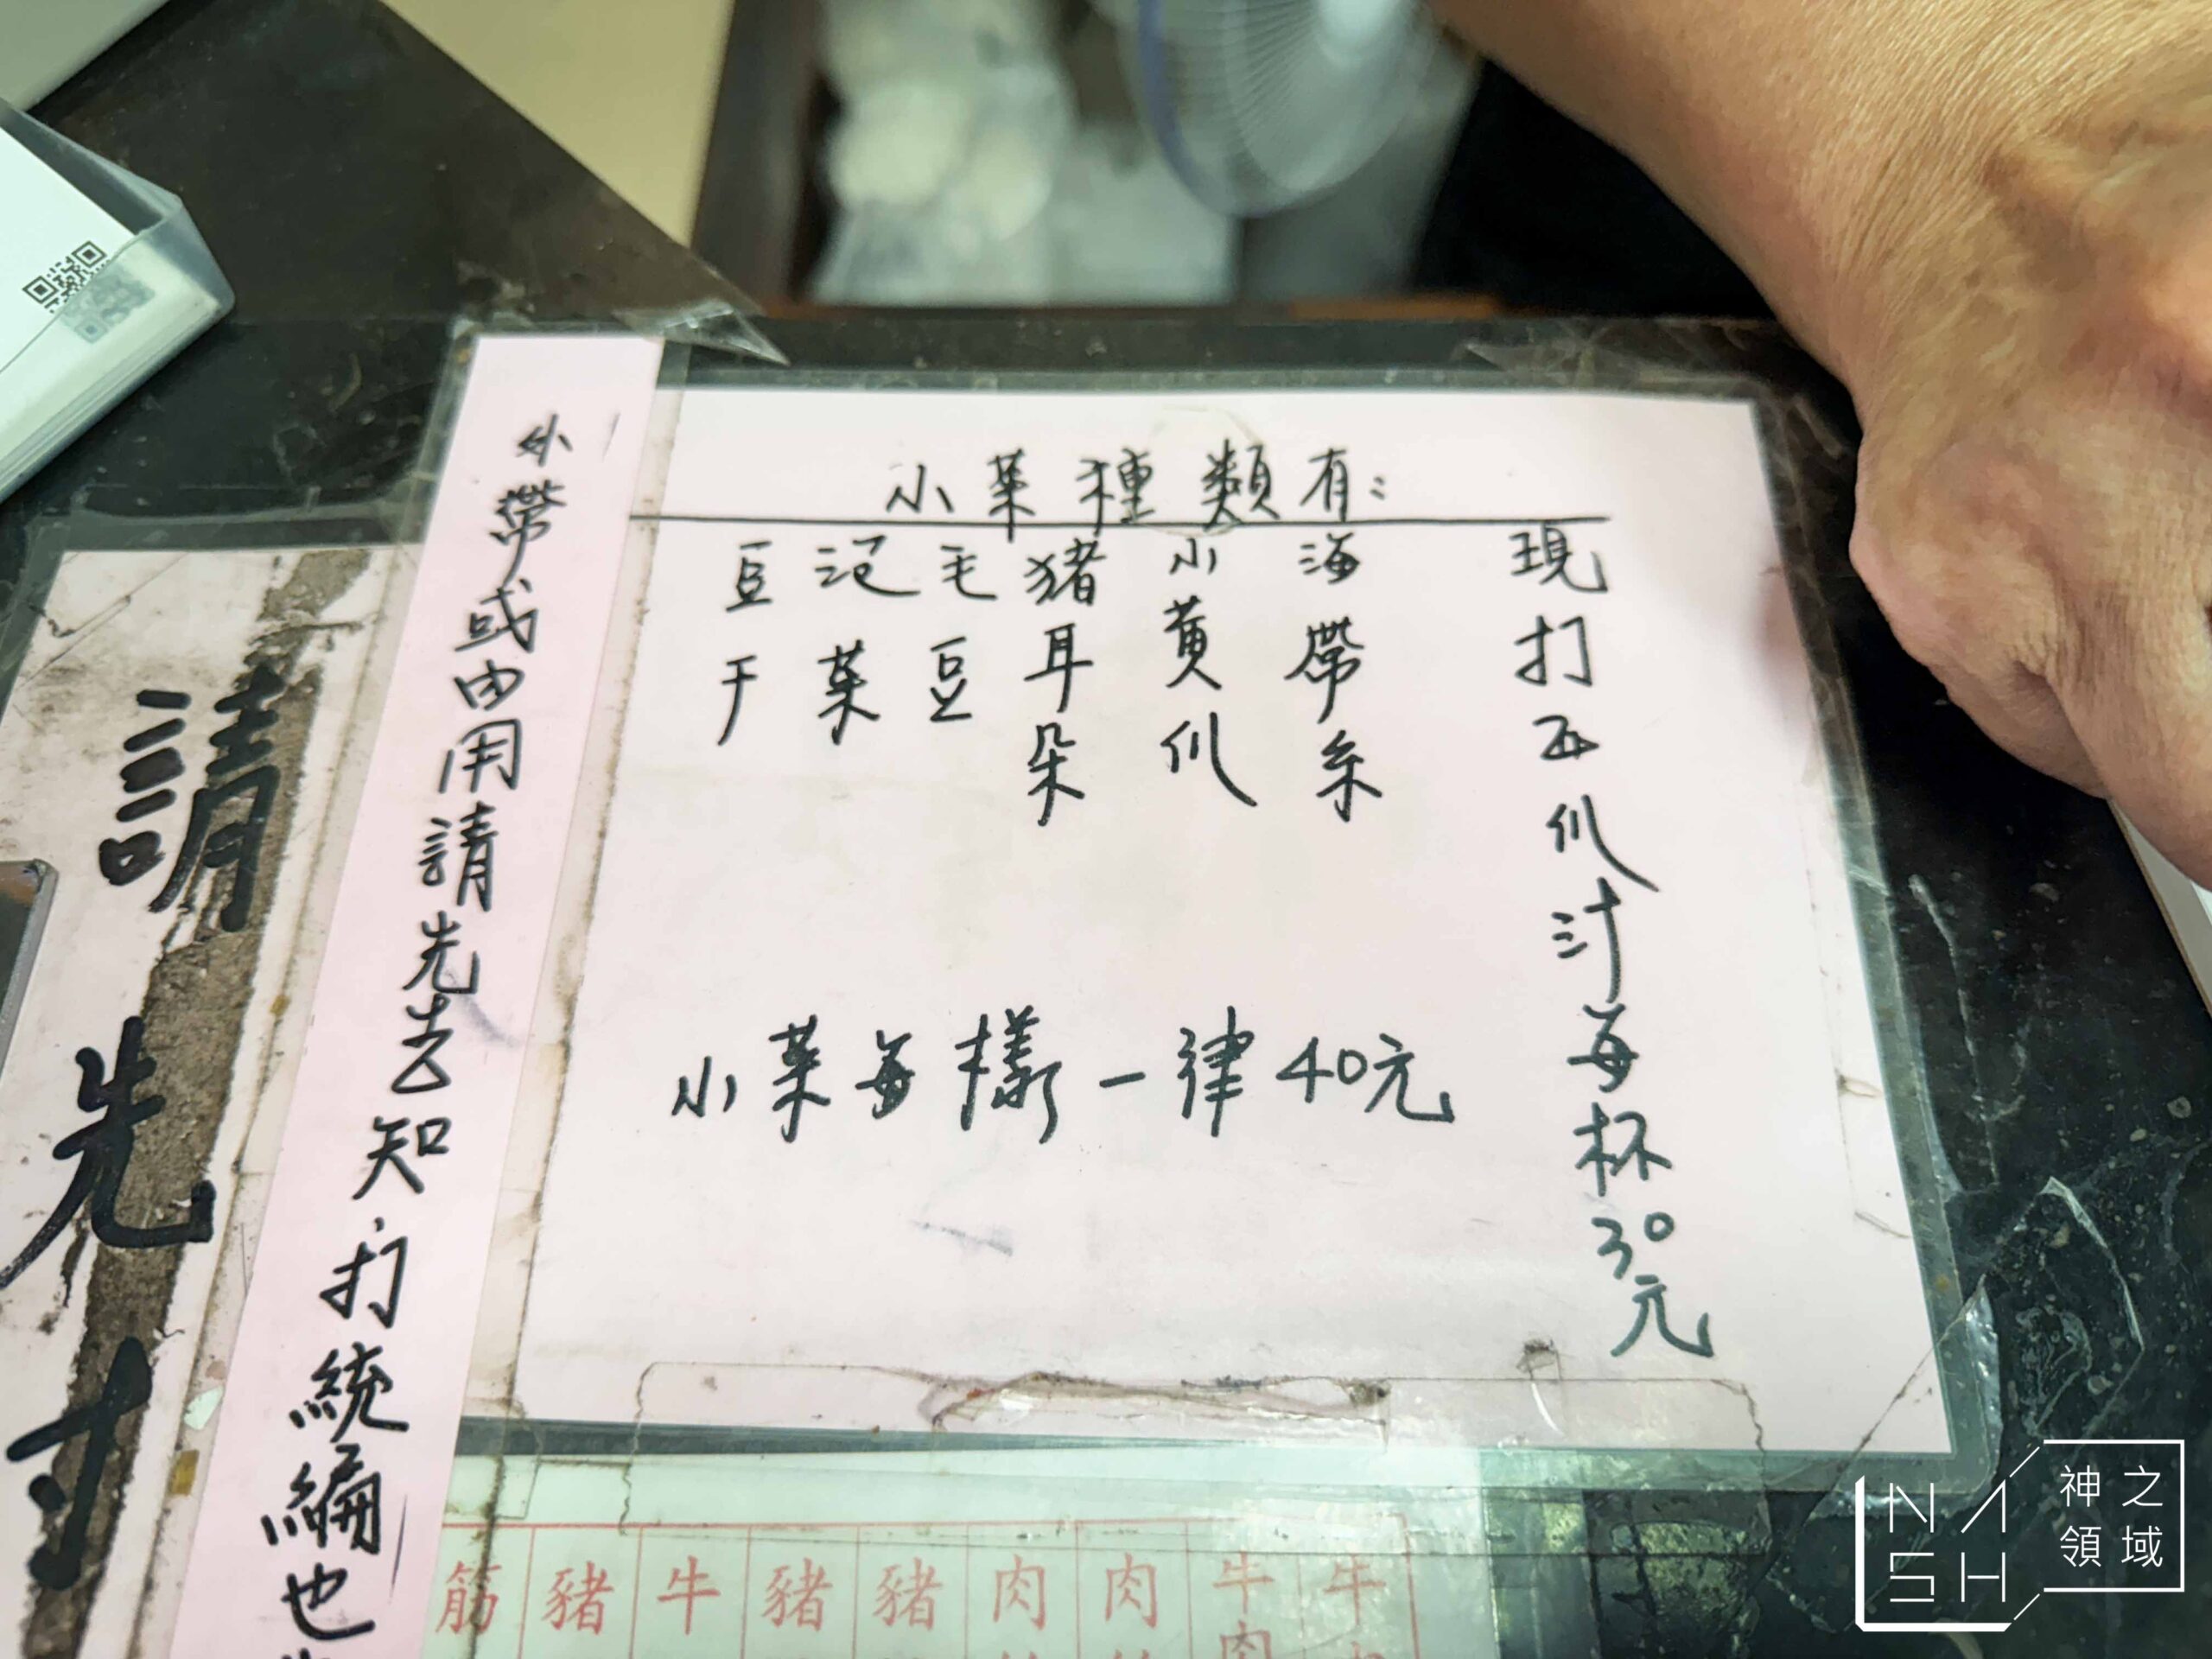 小菜種類有:
現打西瓜汁每杯30元
海帶糸
小黃瓜
猪耳朵
毛豆
泡菜
豆干
小菜每樣一律40元
外帶或內用請先告知,打統編也
請先
牛
牛肉
肉
肉
豬
豬
牛
豬
筋
NASH
神之領域